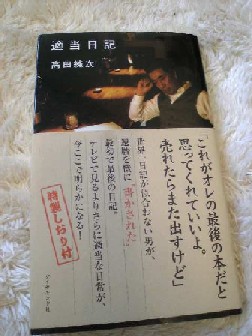 適当日記
高田純次
「これがオレの最後の本だと
思ってくれていいよ。
売れたらまた出すけど」
世界一日記が似合わない男が、
還暦を機に“書かされた”
最初で最後の日記。
テレビで見るよりさらに適当な日常が、
今ここで明らかになる!
特製しおり付
ダイヤモンド社